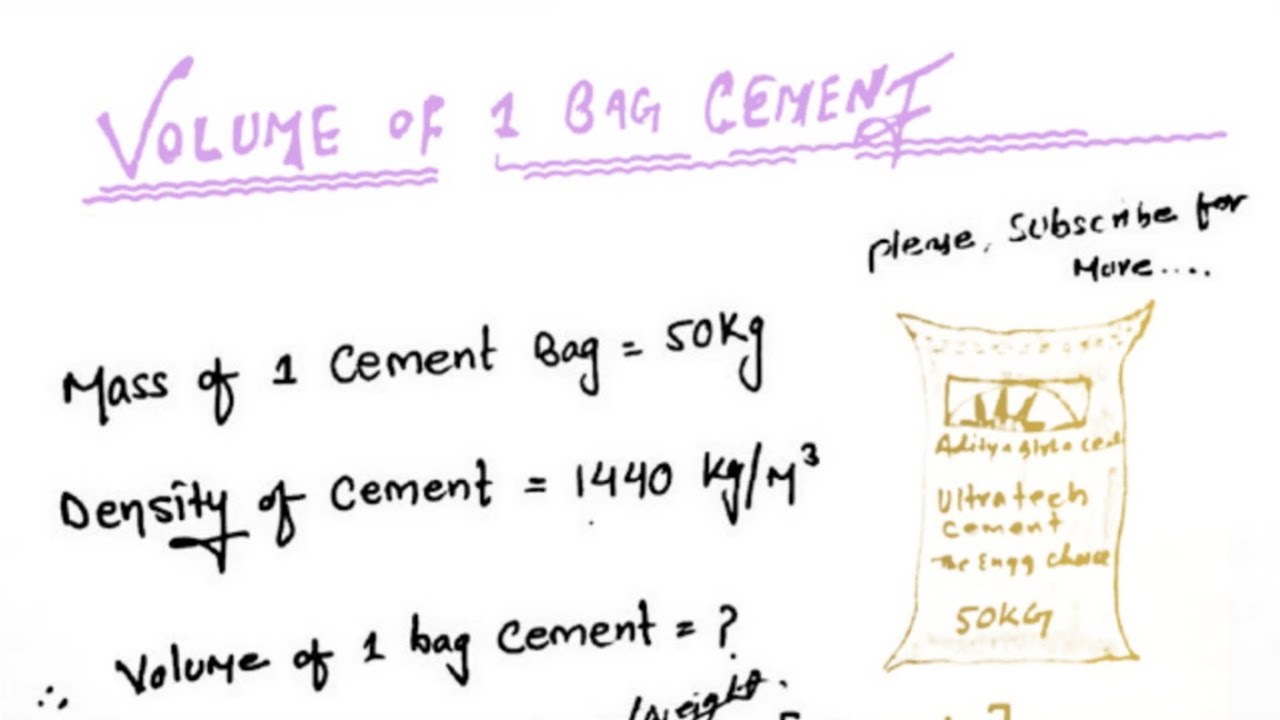 VOLUME OF 1 BAG CEMENT
please, Subscribe for
More....
Mass of 1 Cement Bag = 50Kg
Density of Cement = 1440 Kg/M³
Ultratech
cement
The Engg choice
50KG
∴ Volume of 1 bag Cement = ?
Weight.